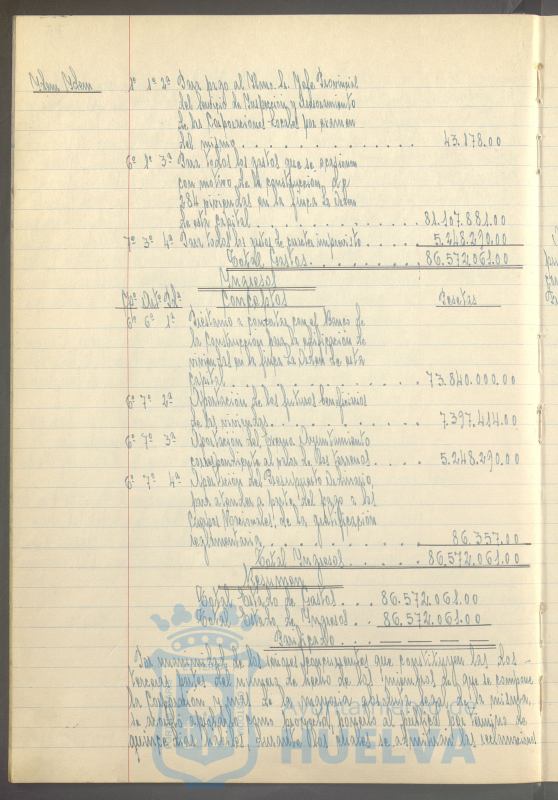 Idem Idem 1º 1º 2ª Para pago al Ilmo. Sr. Jefe Provincial
del Servicio de Inspeccion y Asesoramiento
de las Corporaciones Locales por examen
del mismo . . . . 43.178.00
6º 1º 3ª Para todos los gastos que se ocasionen
con motivo de la construccion de
384 viviendas en la finca la Orden
de esta capital . . . . 81.107.881.00
7º 3º 4ª Para todos los gastos de caracter imprevisto . . . . 5.248.290.00
Total Gastos . . . . 86.572.061.00
Ingresos
Cpº Artº Pda Conceptos Pesetas
6º 6º 1ª Prestamo a concertar con el Banco de
la Construccion para la edificacion de
viviendas en la finca La Orden de esta
capital . . . . 73.840.000.00
6º 7º 2ª Aportacion de los futuros beneficiarios
de las viviendas . . . . 7.397.414.00
6º 7º 3ª Aportacion del Excmo Ayuntamiento
correspondiente al valor de los terrenos . . . . 5.248.290.00
6º 7º 4ª Aportacion del Presupuesto Ordinario
para atender a parte del pago a los
Cuerpos Nacionales de la gratificación
reglamentaria . . . . 86.357.00
Total Ingresos . . . . 86.572.061.00
Resumen
Total Estado de Gastos . . . 86.572.061.00
Total Estado de Ingresos . . 86.572.061.00
Nivelado . . . — — — —
Por unanimidad de los señores concurrentes que constituyen las dos
terceras partes del número de hecho de los miembros del que se compone
la Corporacion y mas de la mayoria absoluta legal de la misma,
se acordó aprobarlo como proyecto, ponerlo al publico por termino de
quince dias habiles, durante los cuales se admitirán las reclamaciones
HUELVA